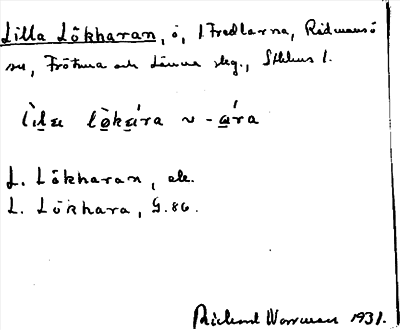 Lilla Lökharan, ö, i Fredlarna, Rådmansö
sn, Frötuna och Länna skg., Sthlms l.
l. Lökharan, ek.
L. Lökhara, G.86.
Richard Worman 1931.